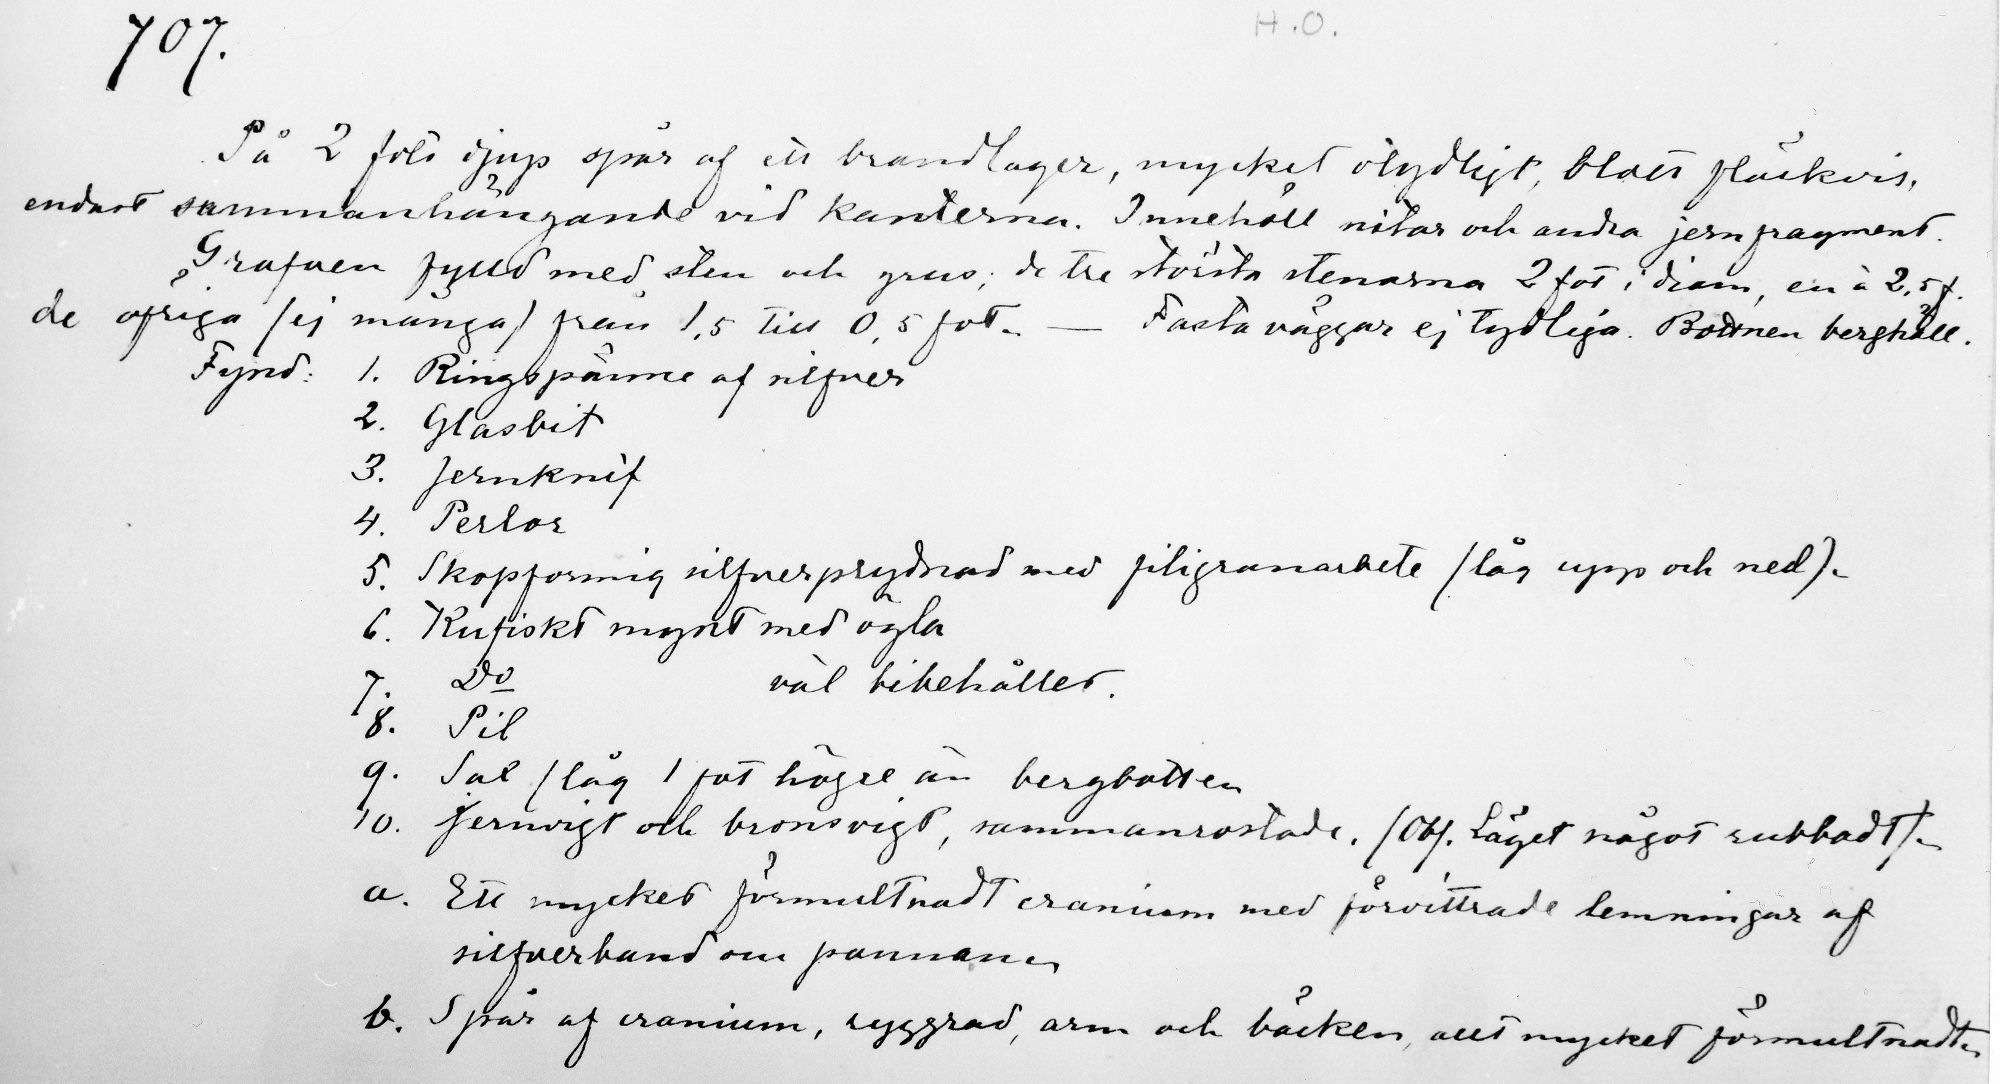 707.
H.O.
På 2 fots djup spår af ett brandlager, mycket otydligt, blott fläckvis,
endast sammanhängande vid kanterna. Innehöll nitar och andra jernfragment.
Grafven fylld med sten och grus; de tre största stenarna 2 fot i diam, en à 2,5 f.
de öfriga (ej många) från 1,5 till 0,5 fot. — Fasta väggar ej tydliga. Bottnen berghäll.
Fynd: 1. Ringspänne af silfver
2. Glasbit
3. Jernknif
4. Perlor
5. Skopformig silfverprydnad med filigranarbete (låg upp och ned).
6. Kufiskt mynt med ögla
7. Do väl bibehållet.
8. Pil
9. (låg 1 fot högre än bergbotten
10. Jernvigt och bronsvigt, sammanrostade. (Obs. Läget något rubbadt).
a. Ett mycket förmultnadt cranium med förvittrade lemningar af
silfverband om pannan.
b. Spår af cranium, ryggrad, arm och bäcken, allt mycket förmultnadt.